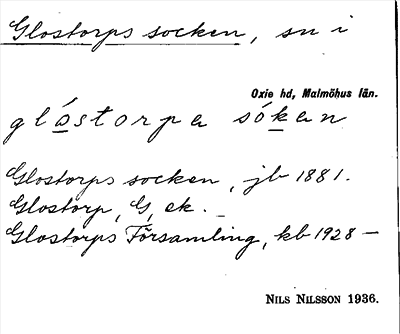 Glostorps socken, sn i
Oxie hd, Malmöhus län.
glóstorpa sóken
Glostorps socken, jb 1881.
Glostorp, G, ek.
Glostorps Församling, kb 1928 —
NILS NILSSON 1936.